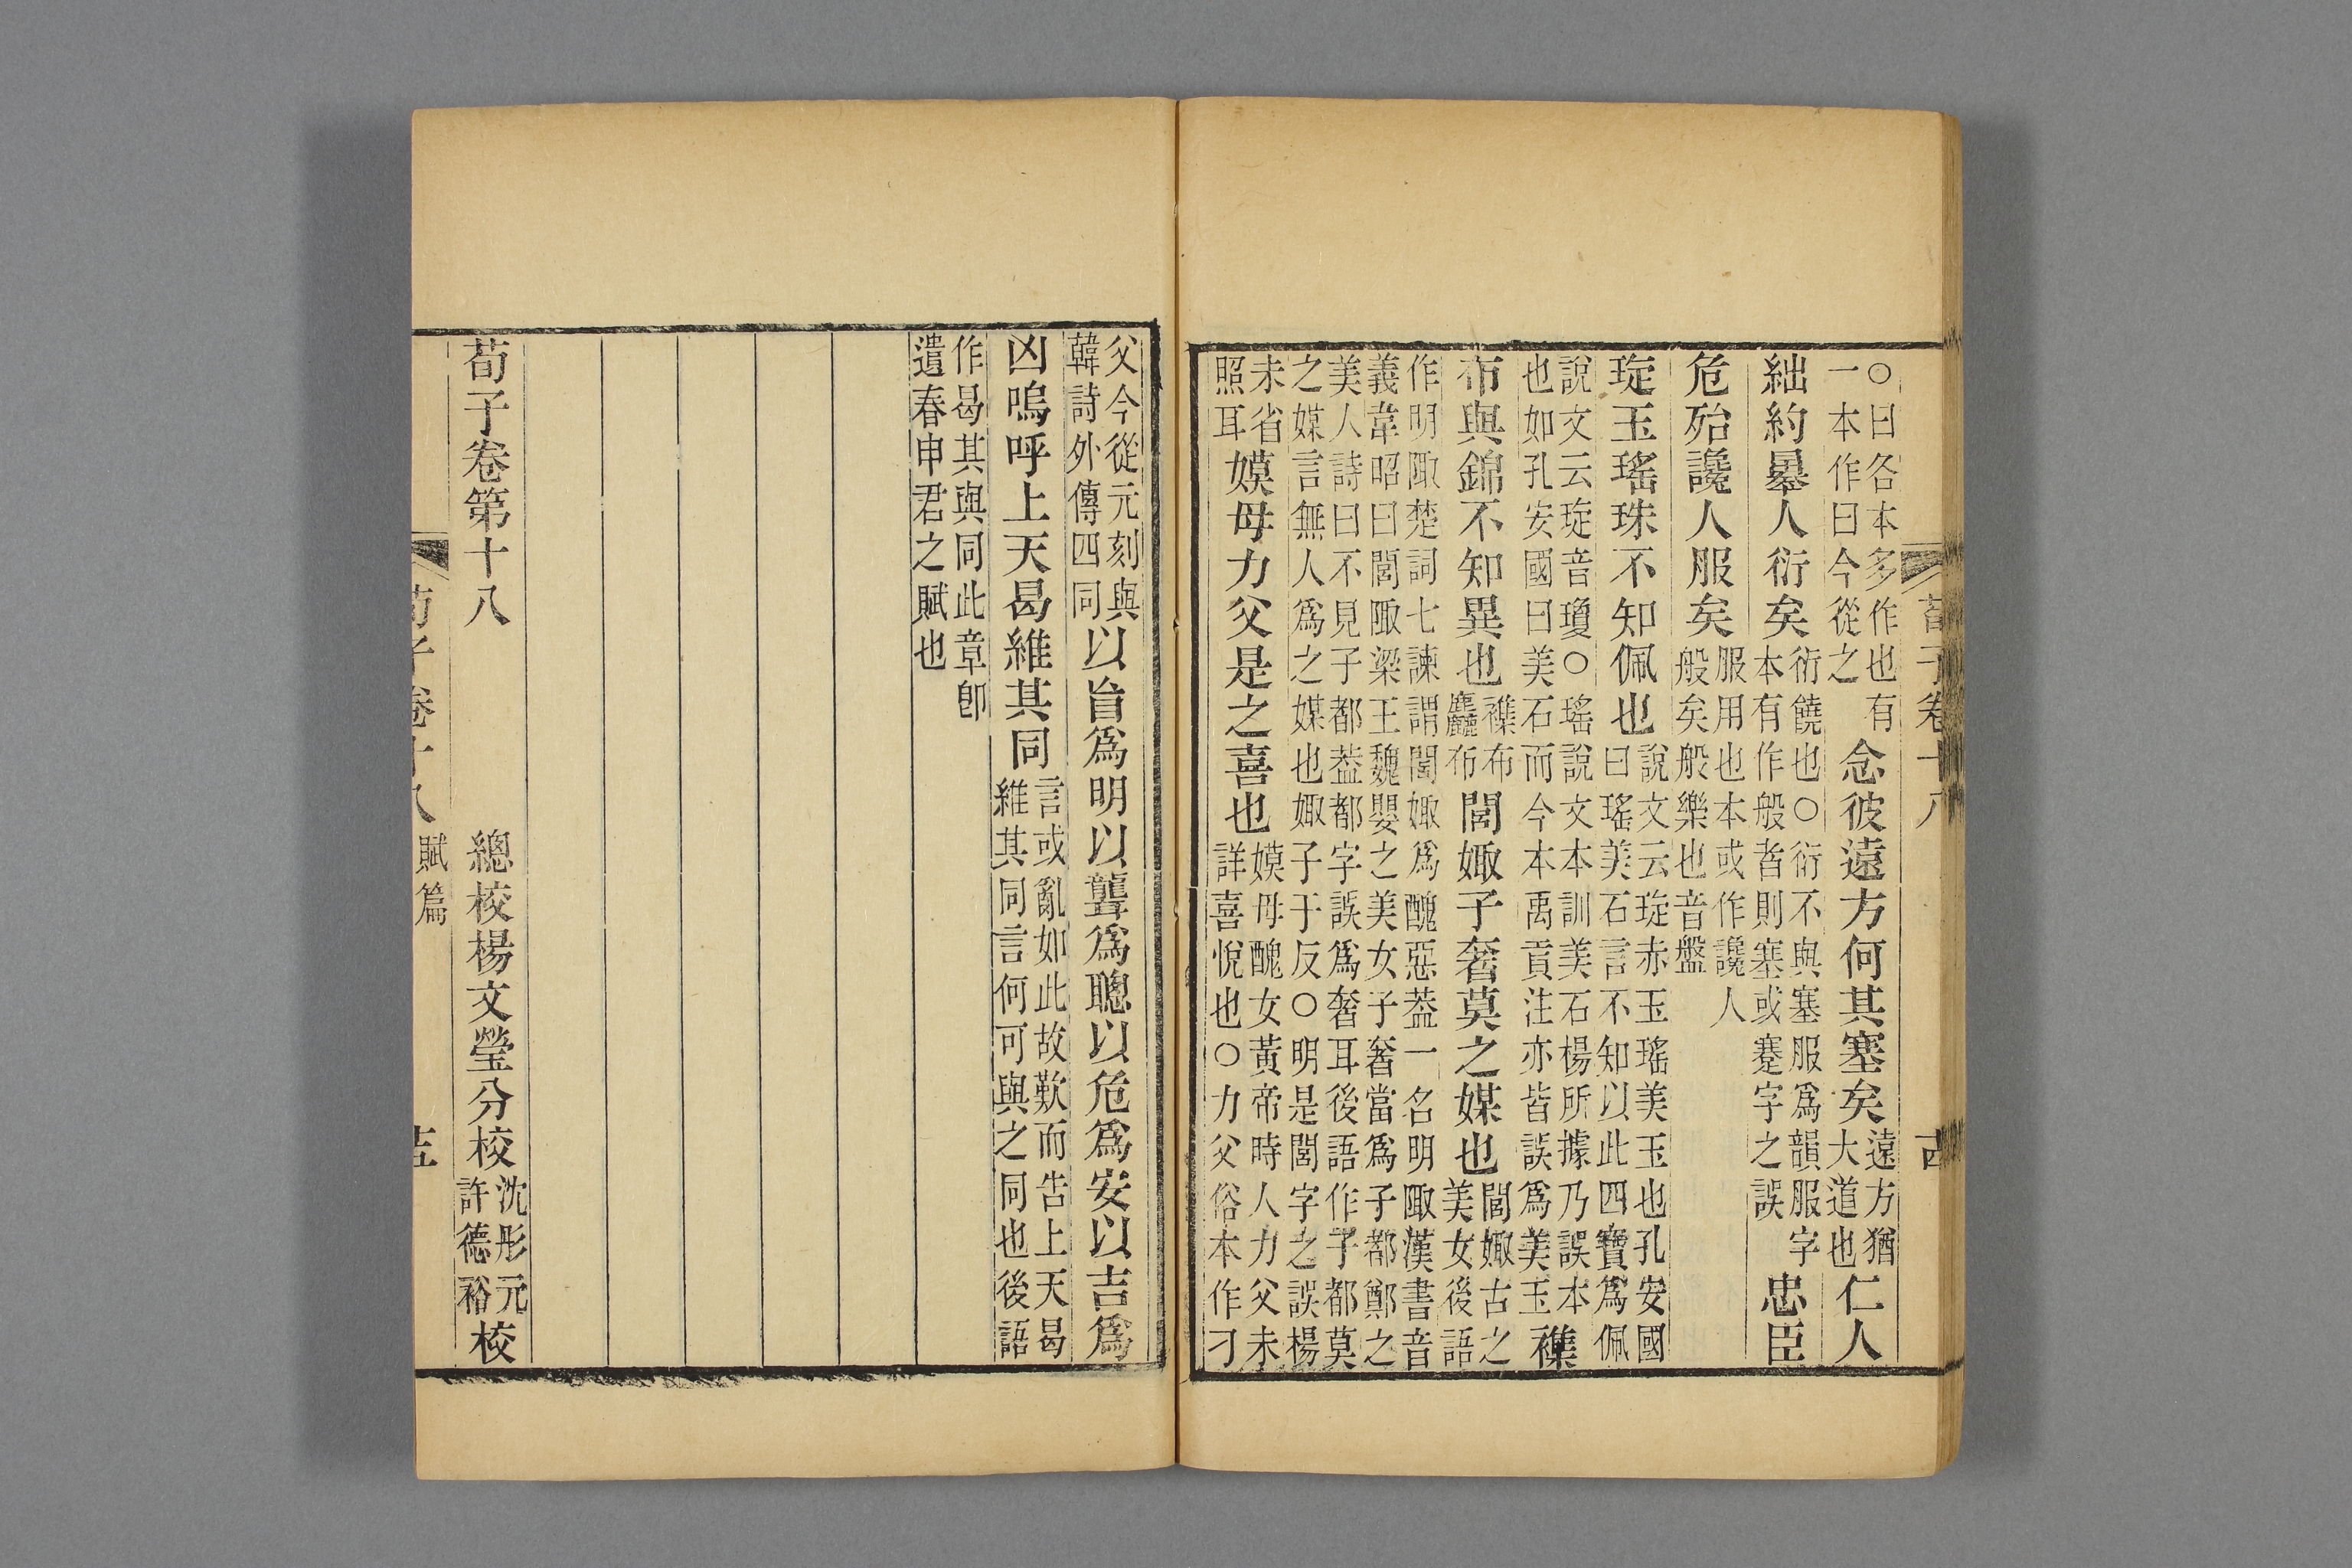 荀子卷十八
○曰各本多作也有一本作曰今從之念彼遠方何其塞矣遠方猶大道也仁人
絀約暴人衍矣衍饒也○衍不與塞服爲韻服字本有作般者則塞或蹇字之誤忠臣
危殆讒人服矣服用也本或作讒人般矣般樂也音盤
琁玉瑤珠不知佩也說文云琁赤玉瑤美玉也孔安國曰瑤美石言不知以此四寶爲佩
說文云琁音瓊○瑤說文本訓美石楊所據乃誤本也如孔安國曰美石而今本禹貢注亦皆誤爲美玉襍
布與錦不知異也襍布麤布閭娵子奢莫之媒也閭娵古之美女後語
作明陬楚詞七諫謂閭娵爲醜惡葢一名明陬漢書音義韋昭曰閭陬梁王魏嬰之美女子奢當爲子都鄭之
美人詩曰不見子都葢都字誤爲奢耳後語作子都莫之媒言無人爲之媒也娵子于反○明是閭字之誤楊
未省照耳嫫母力父是之喜也嫫母醜女黃帝時人力父未詳喜悅也○力父俗本作刁
父今從元刻與韓詩外傳四同以盲爲明以聾爲聰以危爲安以吉爲
凶嗚呼上天曷維其同言或亂如此故歎而告上天曷維其同言何可與之同也後語
作曷其與同此章卽遺春申君之賦也
荀子卷第十八 總校楊文瑩分校沈彤元許德裕校
荀子卷十八 賦篇